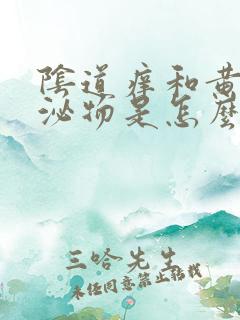 陰道痒和黃
泌物是怎麼
三哈先生
未经同意禁止转载